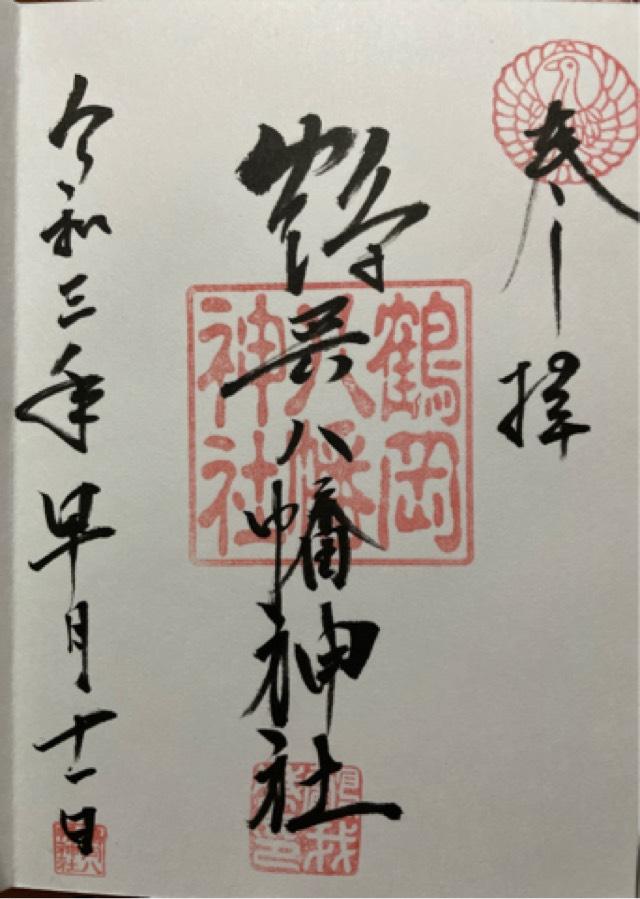 奉拝
鶴岡八幡神社
鶴岡
八幡
神社
令和三年早月十一日